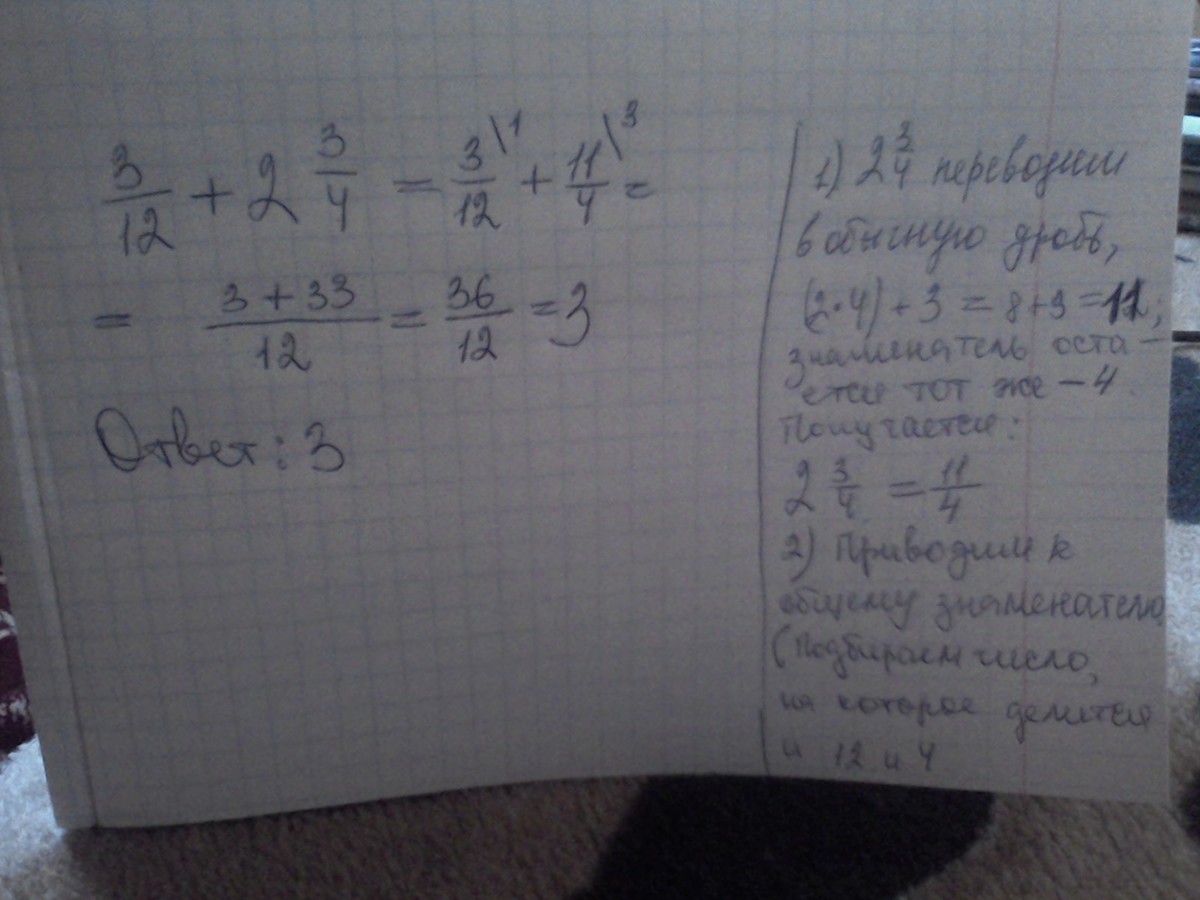 3/12 + 2 3/4 = 3/12 \1 + 11/4 \3 =
= (3 + 33)/12 = 36/12 = 3
Ответ: 3
1) 2 3/4 переводим
в обычную дробь,
(2·4) + 3 = 8+3 = 11;
знаменатель оста-
ется тот же – 4.
Получается:
2 3/4 = 11/4
2) Приводим к
общему знаменателю
(Подбираем число,
на которое делится
и 12 и 4